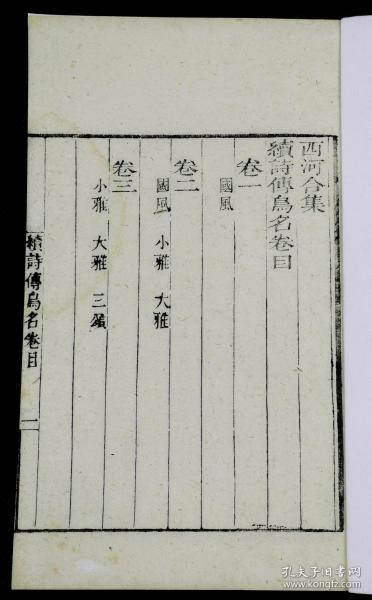 西河合集
續詩傳鳥名卷目
卷一
國風
卷二
國風 小雅 大雅
卷三
小雅 大雅 三頌
續詩傳鳥名卷目
一
孔夫子旧书网